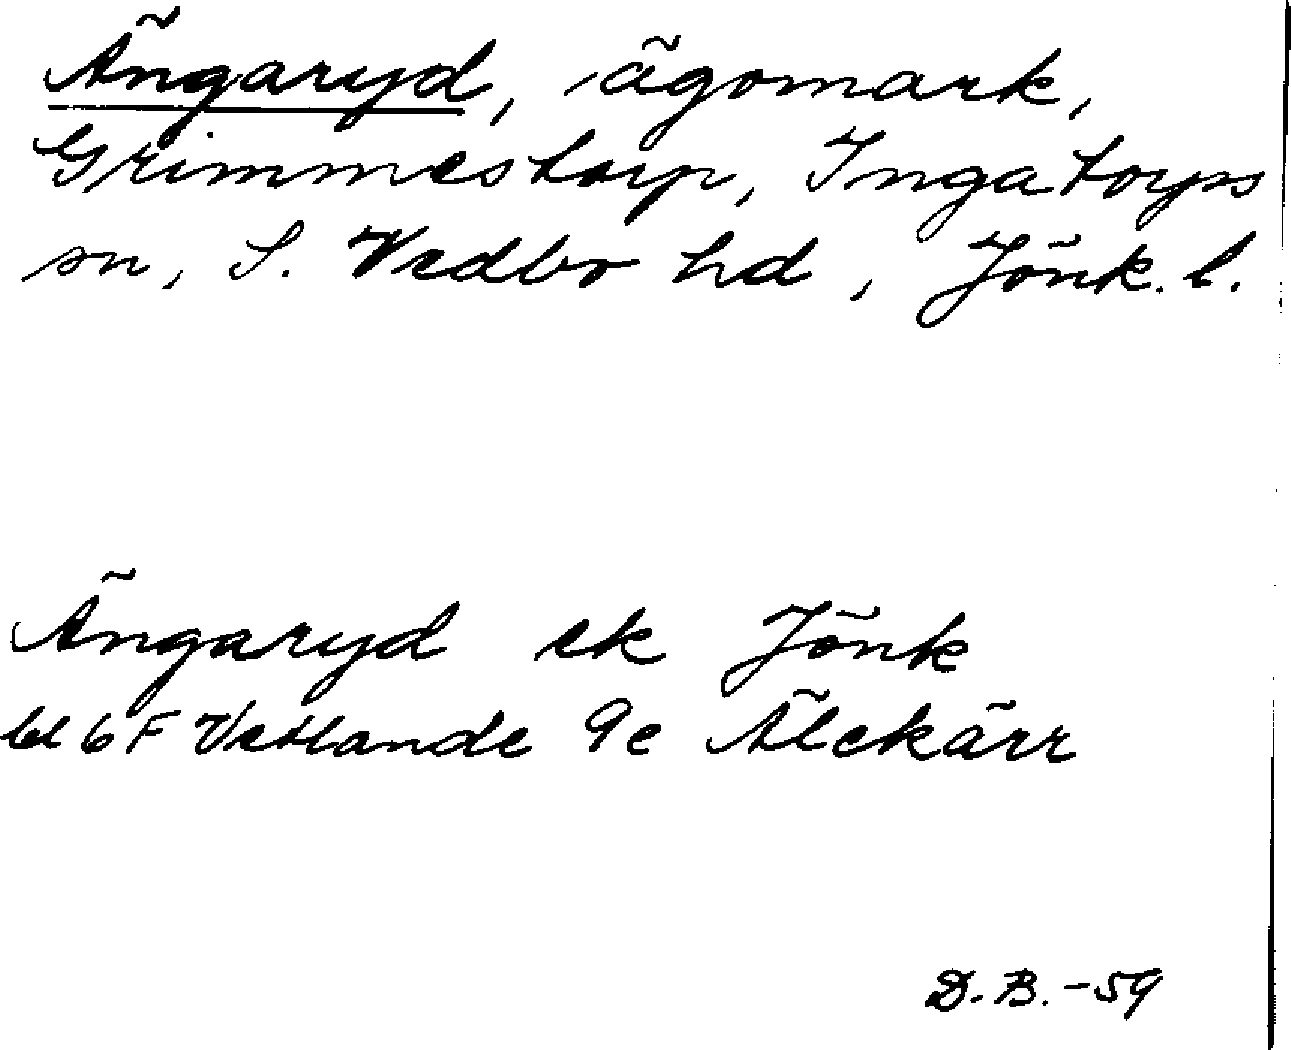 Ängaryd, ägomark,
Grimmestorp, Ingatorps
sn, S. Vedbo hd, Jönk. l.
Ängaryd ek Jönk
bl 6F Vetlande 9e Älekärr
D.B. -59